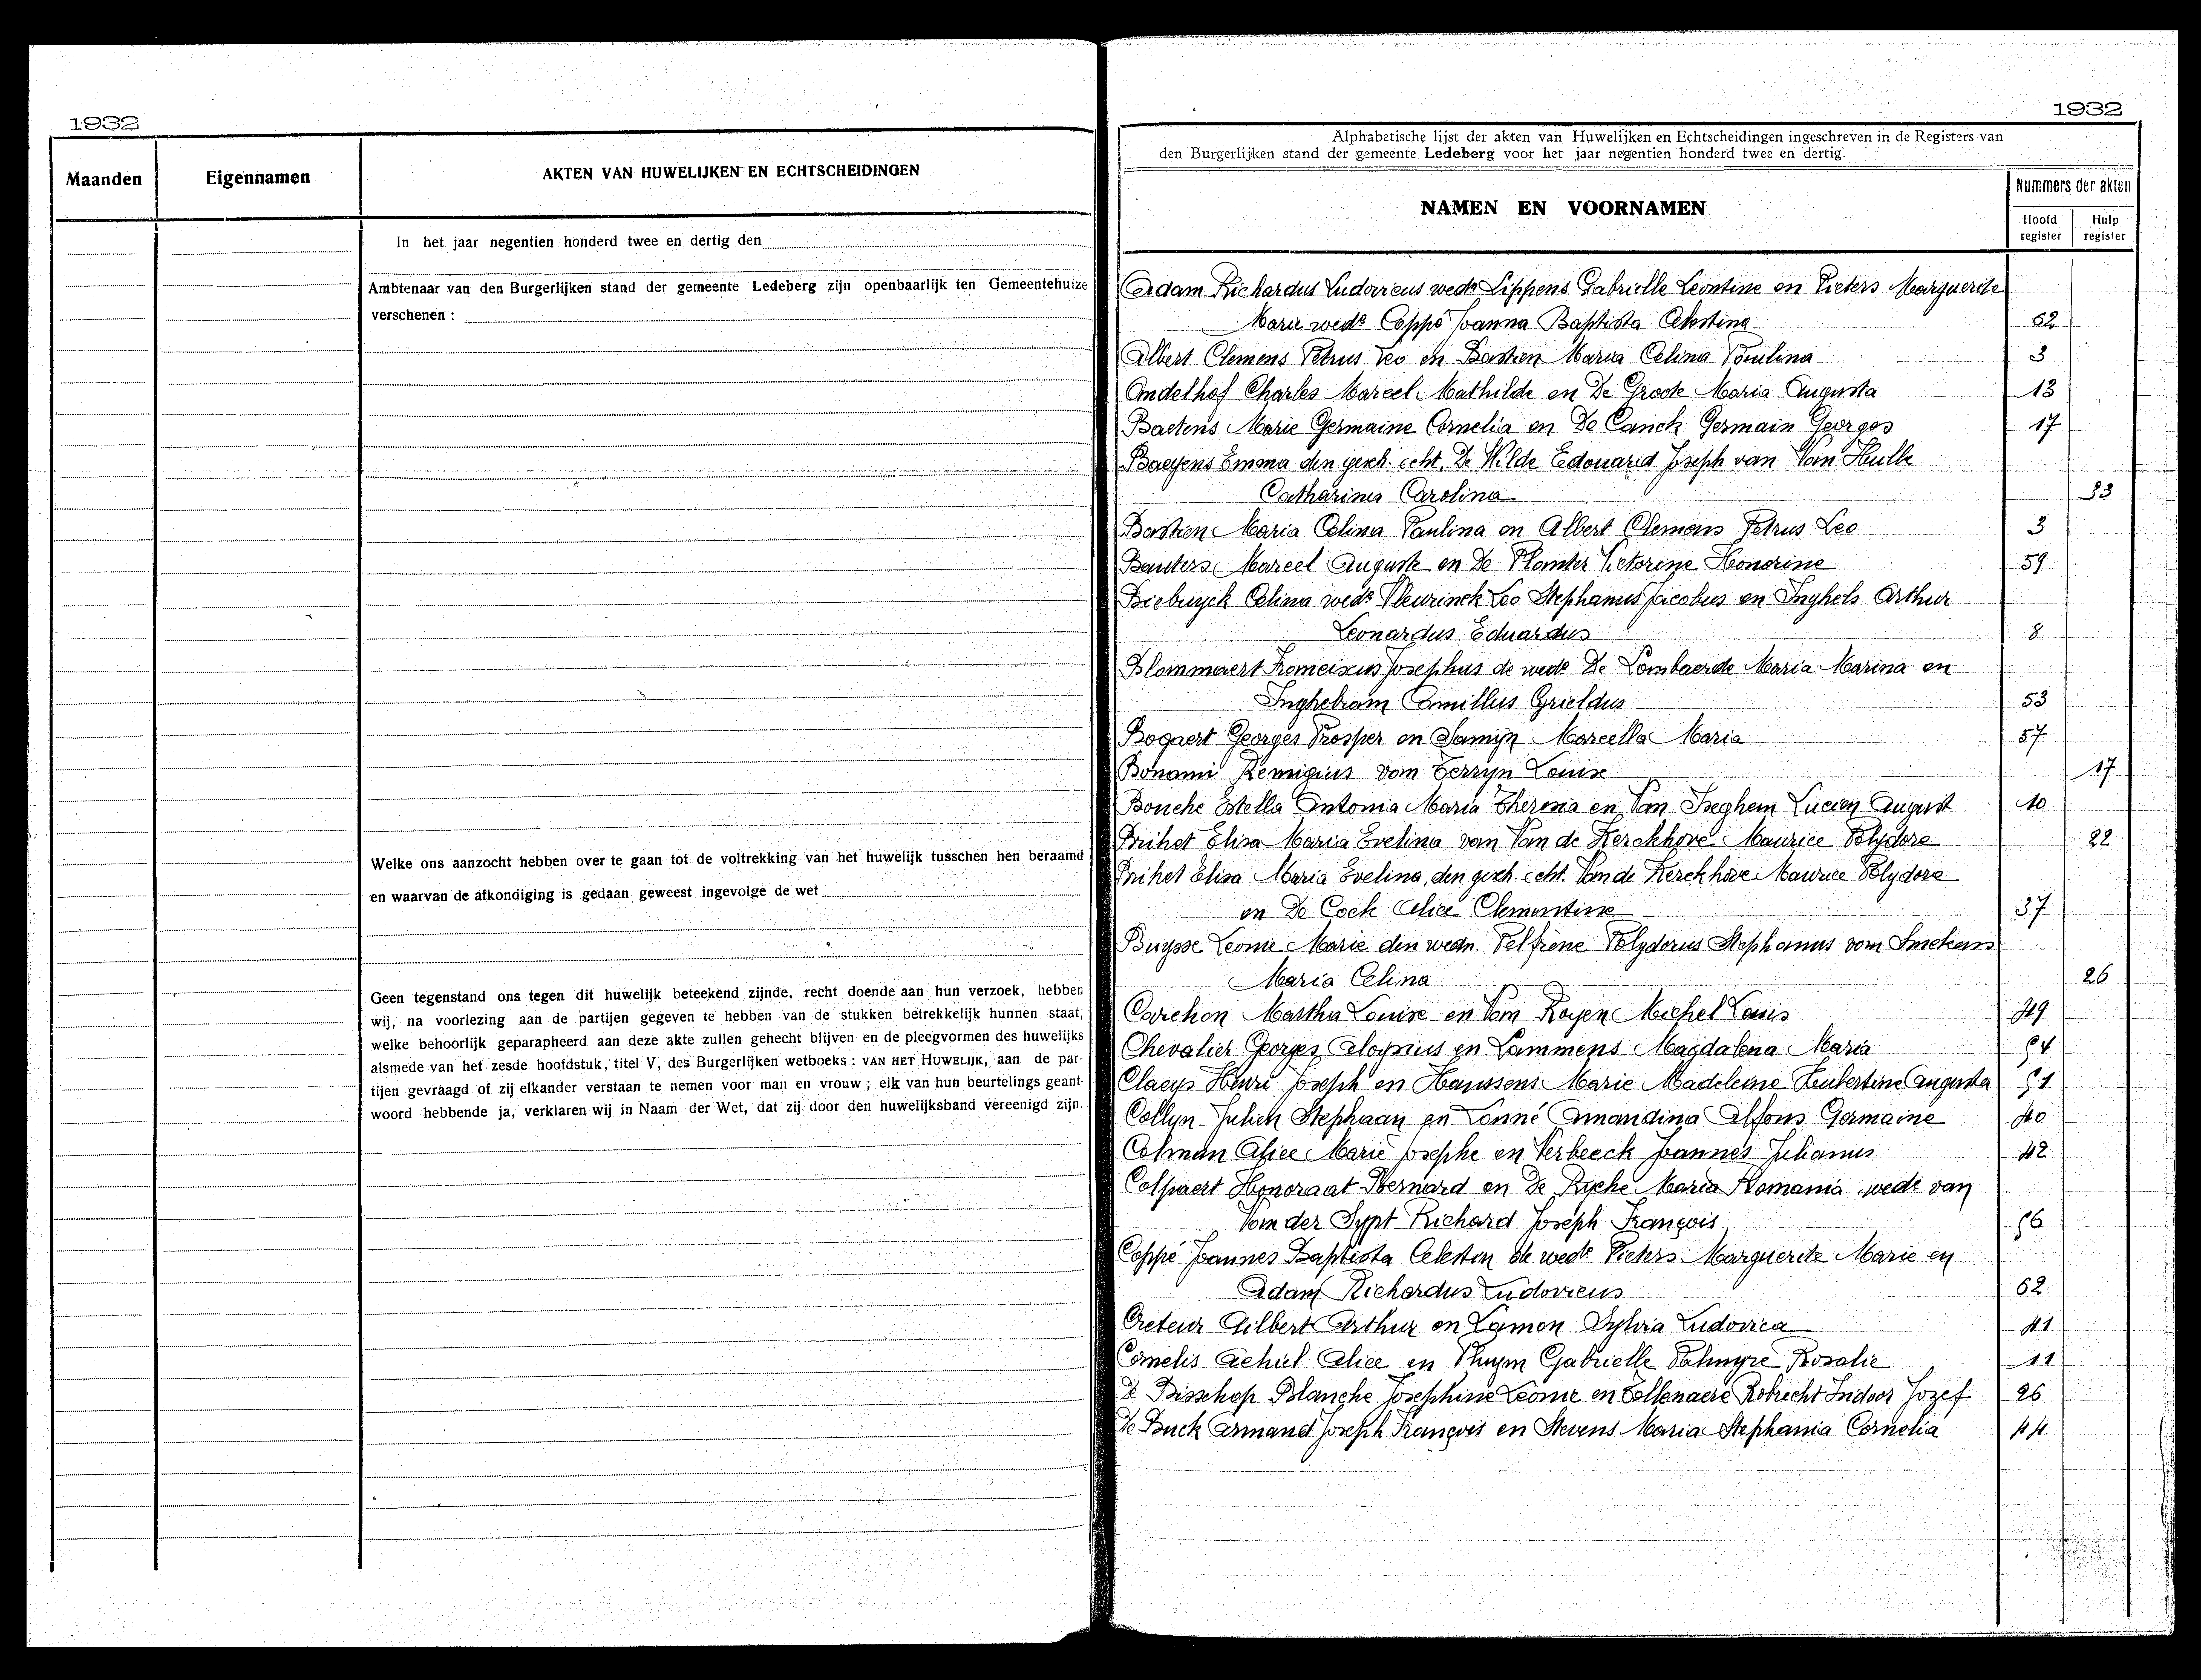 1932
Maanden
Eigennamen
AKTEN VAN HUWELIJKEN EN ECHTSCHEIDINGEN
In het jaar negentien honderd twee en dertig den
Ambtenaar van den Burgerlijken stand der gemeente Ledeberg zijn openbaarlijk ten Gemeentehuize
verschenen :
Welke ons aanzocht hebben over te gaan tot de voltrekking van het huwelijk tusschen hen beraamd
en waarvan de afkondiging is gedaan geweest ingevolge de wet
Geen tegenstand ons tegen dit huwelijk beteekend zijnde, recht doende aan hun verzoek, hebben
wij, na voorlezing aan de partijen gegeven te hebben van de stukken betrekkelijk hunnen staat,
welke behoorlijk geparapheerd aan deze akte zullen gehecht blijven en de pleegvormen des huwelijks
alsmede van het zesde hoofdstuk, titel V, des Burgerlijken wetboeks : VAN HET HUWELIJK, aan de par-
tijen gevraagd of zij elkander verstaan te nemen voor man en vrouw ; elk van hun beurtelings geant-
woord hebbende ja, verklaren wij in Naam der Wet, dat zij door den huwelijksband vereenigd zijn.
1932
Alphabetische lijst der akten van Huwelijken en Echtscheidingen ingeschreven in de Registers van
den Burgerlijken stand der gemeente Ledeberg voor het jaar negentien honderd twee en dertig.
NAMEN EN VOORNAMEN
Nummers der akten
Hoofd register
Hulp register
Adam Richardus Ludovicus wedr Lippens Gabrielle Leontine en Pieters Marguerite
Marie wede Coppé Joanna Baptista Celestina 62
Albert Clemens Petrus Leo en Bastien Maria Celina Paulina 3
Andelhof Charles Marcel Mathilde en De Groote Maria Augusta 13
Baetens Marie Germaine Cornelia en De Canck Germain Georges 17
Baeyens Emma den gesch. echt. De Wilde Edouard Joseph van Van Hulle
Catharina Carolina 33
Bastien Maria Celina Paulina en Albert Clemens Petrus Leo 3
Bauters Marcel Auguste en De Plomter Victorine Honorine 59
Biebuyck Celina wede Vleurinck Leo Stephanus Jacobus en Inghels Arthur
Leonardus Eduardus 8
Blommaert Josephus de wede De Lombaerde Maria Marina en
Inghelram Camillus 53
Bogaert Georges Prosper en Samijn Marcella Maria 57
Bonami Remigius van Terryn Louise 17
Bouche Estella Antonia Maria Theresia en Van Iseghem Lucien August 10
Brihet Elisa Maria Evelina van Van de Kerckhove Maurice Polydore 22
Brihet Elisa Maria Evelina, den gesch. echt. Van de Kerckhove Maurice Polydore
en De Cock Alice Clementine 37
Buysse Leonie Marie den wedn. Telfiene Polydorus Stephanus van
Maria Celina 26
Carchon Martha Louise en Van Royen Michel Louis 49
Chevalier Georges Aloysius en Lammens Magdalena Maria 54
Claeys Henri Joseph en Hanssens Marie Madeleine Hubertine Augusta 51
Collyn Julien Stephaan en Lonné Amandina Alfons Germaine 40
Colman Alice Marie Josephe en Verbeeck Joannes Julianus 42
Colpaert Honoraat Bernard en De Rycke Maria Romania wede van
Van der Sypt Richard Joseph François 56
Coppé Joannes Baptista Celestin de wede Pieters Marguerite Marie en
Adam Richardus Ludovicus 62
Creteur Gilbert Arthur en Lamon Sylvia Ludovica 41
Cornelis Achiel Alice en Thuym Gabrielle Palmyre Rosalie 11
De Bisschop Blanche Josephine Leonie en Tollenaere Robrecht Isidoor Jozef 26
De Buck Armand Joseph François en Stevens Maria Stephania Cornelia 44